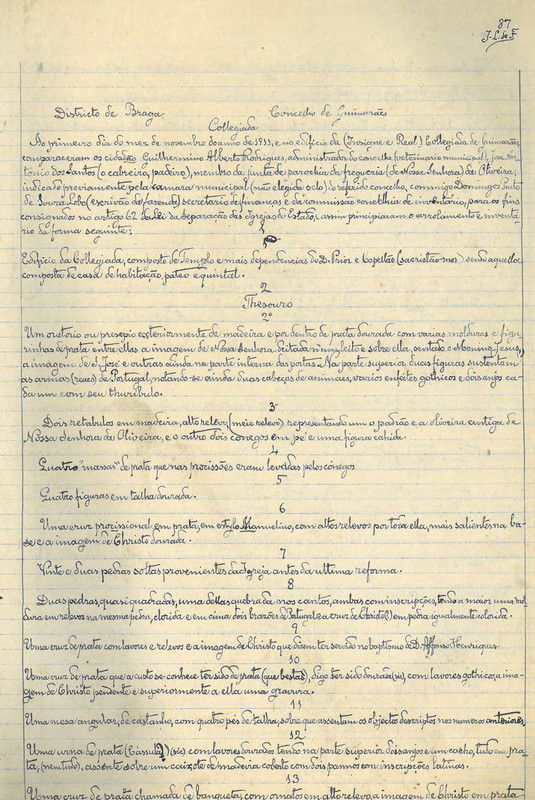 87
J. L. de F.
Districto de Braga Concelho de Guimarães
Collegiada
Ao primeiro dia do mez de novembro do anno de 1911, e no edificio da (Insigne e Real) Collegiada de Guimarães,
compareceram os cidadãos Guilhermino Alberto Rodrigues, administrador do concelho (veterinario municipal), José An-
tonio dos Santos (o cabreiro, padeiro), membro da junta de parochia da freguezia (de Nossa Senhora) da Oliveira,
indicado previamente pela camara municipal (não elegida pelo) do referido concelho, commigo Domingos
de Souza Lobo (escrivão da fazenda) secretario de finanças e da commissão concelhia de inventario, para os fins
consignados no artigo 62 da Lei da separação das Igrejas do Estado, assim principiaram o arrolamento e inventa-
rio da forma seguinte:
1
Edificio da Collegiada, composto de Templo e mais dependencias do D. Prior e Capellão (sacristão-mor) sendo aquella
composta de casa de habitação, pateo e quintal.
2
Thesouro
2º
Um oratorio ou presepio exteriormente de madeira e por dentro de prata dourada com varias molduras e figu-
rinhas de prata, entre ellas a imagem de Nossa Senhora, deitada n'um leito e sobre ella, sentado o Menino Jesus,
a imagem de S. José e outras ainda na parte interna das portas. Na parte superior duas figuras sustentam
as armas (reaes) de Portugal, notando-se ainda duas cabeças de animaes, varios enfeites gothicos e dois anjos ca-
da um com seu thuribulo.
3
Dois retabulos em madeira, alto relevo, (meio relevo) representando um o padrão e a oliveira antiga de
Nossa Senhora da Oliveira, e o outro dois conegos em pé e uma figura cahida.
4
Quatro "massas" de prata que nas procissões eram levadas pelos conegos
5
Quatro figuras em talha dourada.
6
Uma cruz processional, em prata, em estylo Manuelino, com altos relevos por toda ella, mais salientes na ba-
se e a imagem de Christo dourada.
7
Vinte e duas pedras soltas provenientes da Igreja antes da ultima reforma.
8
Duas pedras, quasi quadradas, uma dellas quebrada nos cantos, ambas com inscripções, tendo a maior uma mol-
dura em relevos na mesma pedra, colorida e em cima dois brazões de Portugal e a cruz de Christo (?) em pedra igualmente colorida.
9
Uma cruz de prata com lavores e relevos e a imagem de Christo que dizem ter servido no baptismo de D. Affonso Henriques.
10
Uma cruz de prata que a custo se conhece ter sido de prata (que bestas), digo ter sido dourada (sic), com lavores gothicos, a ima-
gem de Christo pendente e superiormente a ella uma gravura.
11
Uma mesa angular, de castanho, com quatro pés de talha, sobre que assentam os objectos descriptos nos numeros anteriores.
12
Uma urna de prata (Capsula?) (sic) com lavores dourados tendo na parte superior dois anjos e um cacho, tudo em pra-
ta, (nem tudo), assente sobre um caixote de madeira coberto com dois pannos em inscripções latinas.
13
Uma cruz de prata chamada de banqueta, com ornatos em alto relevo, a imagem de Christo em prata